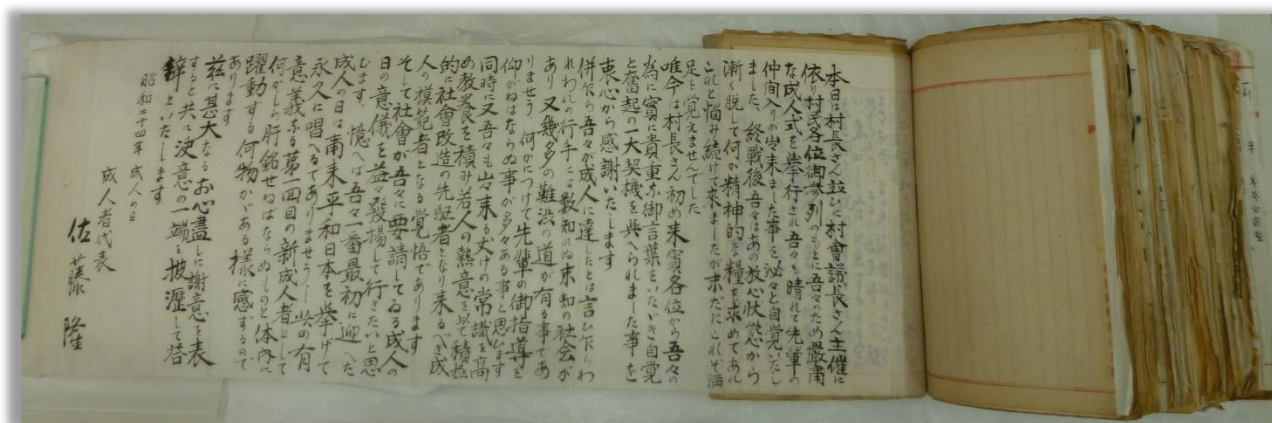 本日は村長さん並びに村會議長さん主催に
依り村民各位御参列のもとに吾々のため嚴肅
な成人式を挙行され吾々も晴れて先輩の
仲間入りが出来ました事を泌々と自覚いたし
ました、終戦後吾々はあの放心状態から
漸く脱して何か精神的な糧を求めてあれ
これと悩み続けて来ましたが未だにこれぞ満
足と覚えませんでした
唯今は村長さん初め来賓各位から吾々の
為に實に貴重な御言葉をいたゞき自覚
と奮起の一大契機を與へられました事を
衷心から感謝いたします
併し乍ら吾々が成人に達したとは言ひ乍らわ
れわれの行手には数知れぬ未知の社会が
あり又幾多の難渋の道が有る事であ
りませう 何かにつけて先輩の御指導を
仰がねばならぬ事が多々ある事と思ひます
同時に又吾々も出来る丈けの常識を高
め教養を積み若人の熱意を以て積極
的に社會改造の先駆者となり来るべき成
人の模範者となる覚悟であります
そして社會が吾々に要請してゐる成人の
日の意儀を益々發揚して行きたいと思
ひます、憶へば吾々一番最初に迎へた
成人の日は南来平和日本を挙げて
永久に唱へるでありませうし此の有
意義なる第一回目の新成人者として
何かしら肝銘せねばならぬものと体内に
躍動する何物かゞある様に感ずるので
あります
茲に甚大なるお心盡しに謝意を表
すると共に決意の一端を披瀝して答
辞といたします
昭和二十四年 成人の日
成人者代表
佐藤 隆